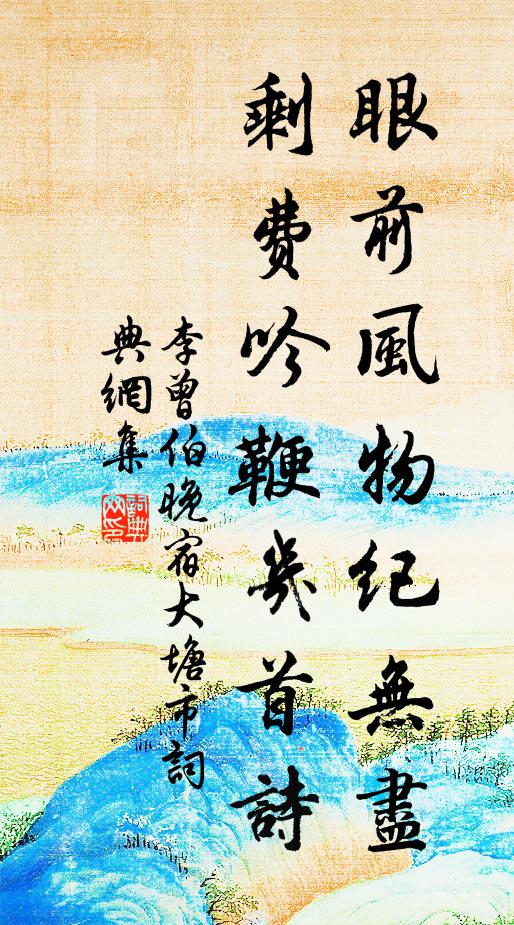 眼前風物紀無盡
剩費吟鞭幾首詩
李曾伯晚宿大塘市詞
典網集